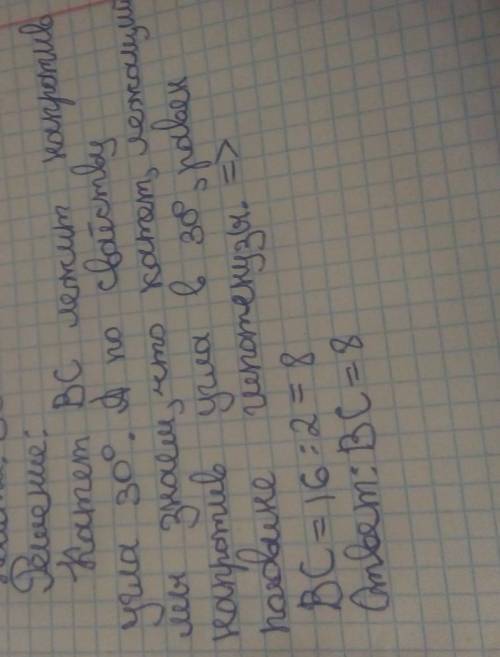 Решение:
Катет BC лежит напротив
угла 30°. А по свойству
мы знаем, что катет, лежащий
напротив угла в 30°, равен
половине гипотенузы. =>
BC = 16 : 2 = 8
Ответ: BC = 8